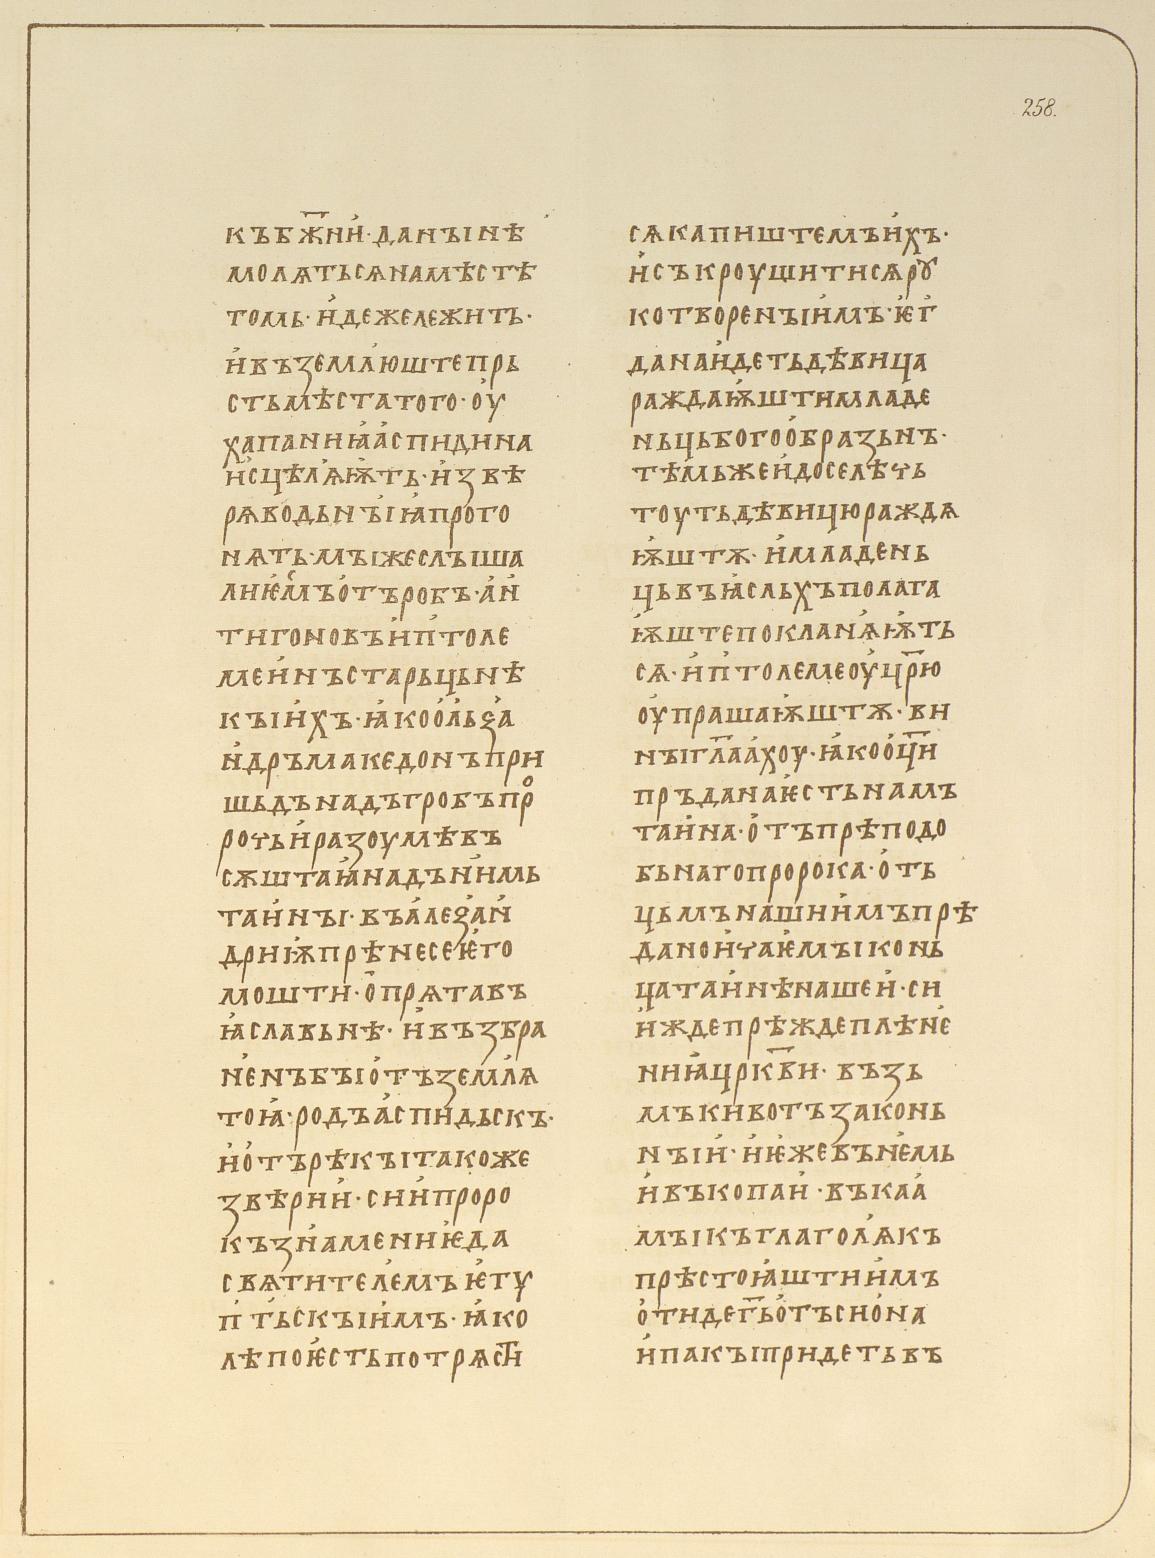 258.
къбж҃ни҆и҆·данꙑнѣ
молѧтьсѧнамѣстѣ
томь·и҆дежележить·
и҆въꙁемлѭштепрь
стьмѣстатого·оу҆
хапаниꙗ҆а҆спидина
и҆сцѣлѧ҆ѭ҆ть·и҆ꙁвѣ
рѧводьнꙑꙗ҆прого
нѧть·мꙑжеслꙑша
лиѥ҆мъо҆търобъ·а҆н҆
тигоновъи҆п҆толе
меи҆нъстарьцьнѣ
кꙑи҆хъ·ꙗ҆коо҆льѯа҆
н҆дръмакедонъпри
шьдънадъгробъпро
рочьи҆раꙁоумѣвъ
сѫштаꙗ҆надън҆и҆мь
таи҆нꙑ·въа҆леѯа҆н҆
дриѭ҆прѣнесеѥ҆го
мошти·о҆прѧтавъ
ꙗ҆славьнѣ·и҆въꙁбра
не҆нъбꙑо҆тъꙁемлѧ
тоꙗ҆·родъа҆спидьскъ·
и҆о҆търѣкꙑтакоже
ꙁвѣрии҆·сии҆проро
къꙁн҆амениѥ҆да
свѧтителемъѥ҆гу
п҆тьскꙑи҆мъ·ꙗ҆ко
лѣпоѥ҆стьпотрѧсти
сѧкапиштемъи҆хъ·
и҆съкроушитисѧрꙋ
котворенꙑи҆мъ·ѥ҆г҆
данаи҆детьдѣвица
раждаѭ҆штимладе
ньцьбогоо҆браꙁьнъ·
тѣмьжеи҆доселѣчь
тоутьдѣвицюраждѧ
ѭ҆штѫ·и҆младень
цьвъꙗ҆сльхъполага
ѭ҆штепокланѧ҆ѭ҆ть
сѧ·и҆п҆толемеоу҆цр҃ю
оу҆прашаѭ҆штѫ·ви
нꙑгл҃аа҆хоу·ꙗ҆коо҆ц҃и
пръданаѥ҆стьнамъ
таи҆на·о҆тъпрѣподо
бьнагопророка·о҆ть
цьмънашии҆мъпрѣ
данои҆чаѥ҆мꙑконь
цатаи҆нѣнашеи҆·си
и҆ждепрѣждеплѣне҆
ниꙗ҆црк҃ви·въꙁь
мъки҆вотъꙁаконь
нꙑи҆·и҆ѥ҆жевънемь
и҆въкопаи҆·въкаа҆
мꙑкъглаголѧ҆къ
прѣстоꙗ҆штии҆мъ
о҆тидег҃ьо҆тъсио҆на
и҆пакꙑпридетьвъ